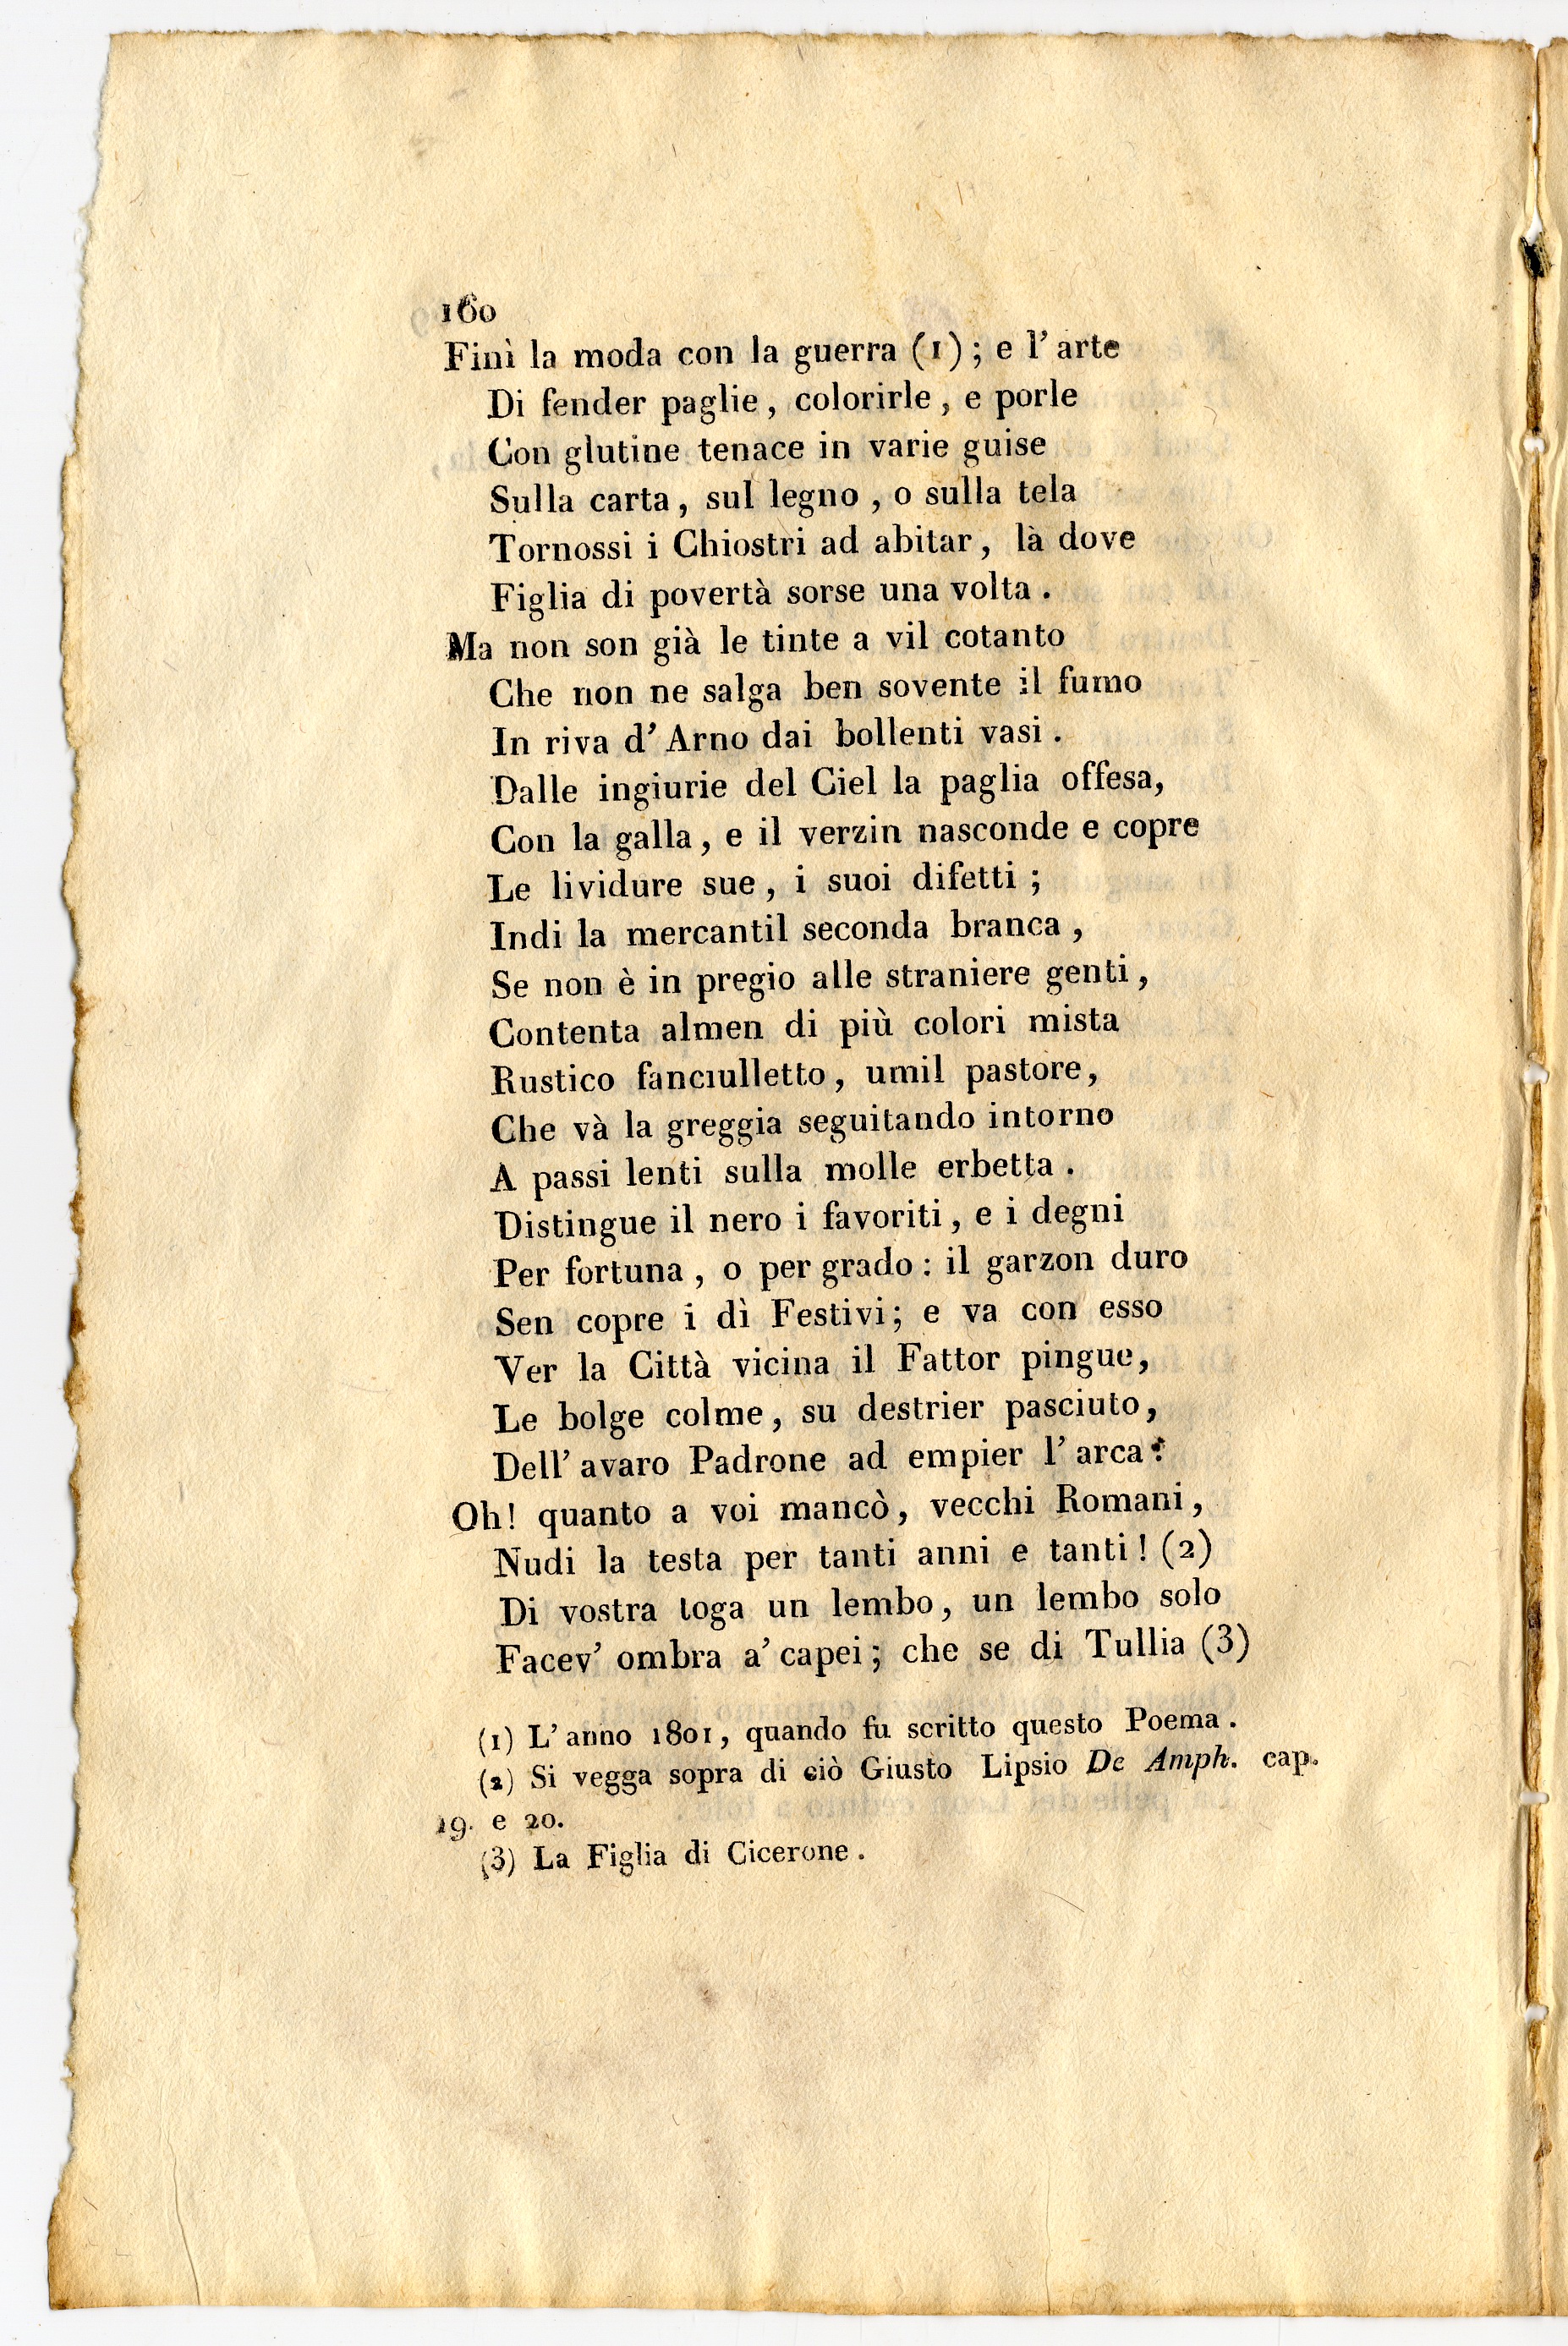 160
Finì la moda con la guerra (1); e l'arte
Di fender paglie, colorirle, e porle
Con glutine tenace in varie guise
Sulla carta, sul legno, o sulla tela
Tornossi i Chiostri ad abitar, là dove
Figlia di povertà sorse una volta.
Ma non son già le tinte a vil cotanto
Che non ne salga ben sovente il fumo
In riva d'Arno dai bollenti vasi.
Dalle ingiurie del Ciel la paglia offesa,
Con la galla, e il verzin nasconde e copre
Le lividure sue, i suoi difetti;
Indi la mercantil seconda branca,
Se non è in pregio alle straniere genti,
Contenta almen di più colori mista
Rustico fanciulletto, umil pastore,
Che và la greggia seguitando intorno
A passi lenti sulla molle erbetta.
Distingue il nero i favoriti, e i degni
Per fortuna, o per grado: il garzon duro
Sen copre i dì Festivi; e va con esso
Ver la Città vicina il Fattor pingue,
Le bolge colme, su destrier pasciuto,
Dell'avaro Padrone ad empier l'arca.
Oh! quanto a voi mancò, vecchi Romani,
Nudi la testa per tanti anni e tanti! (2)
Di vostra toga un lembo, un lembo solo
Facev' ombra a' capei; che se di Tullia (3)
(1) L'anno 1801, quando fu scritto questo Poema.
(2) Si vegga sopra di ciò Giusto Lipsio De Amph. cap.
19. e 20.
(3) La Figlia di Cicerone.